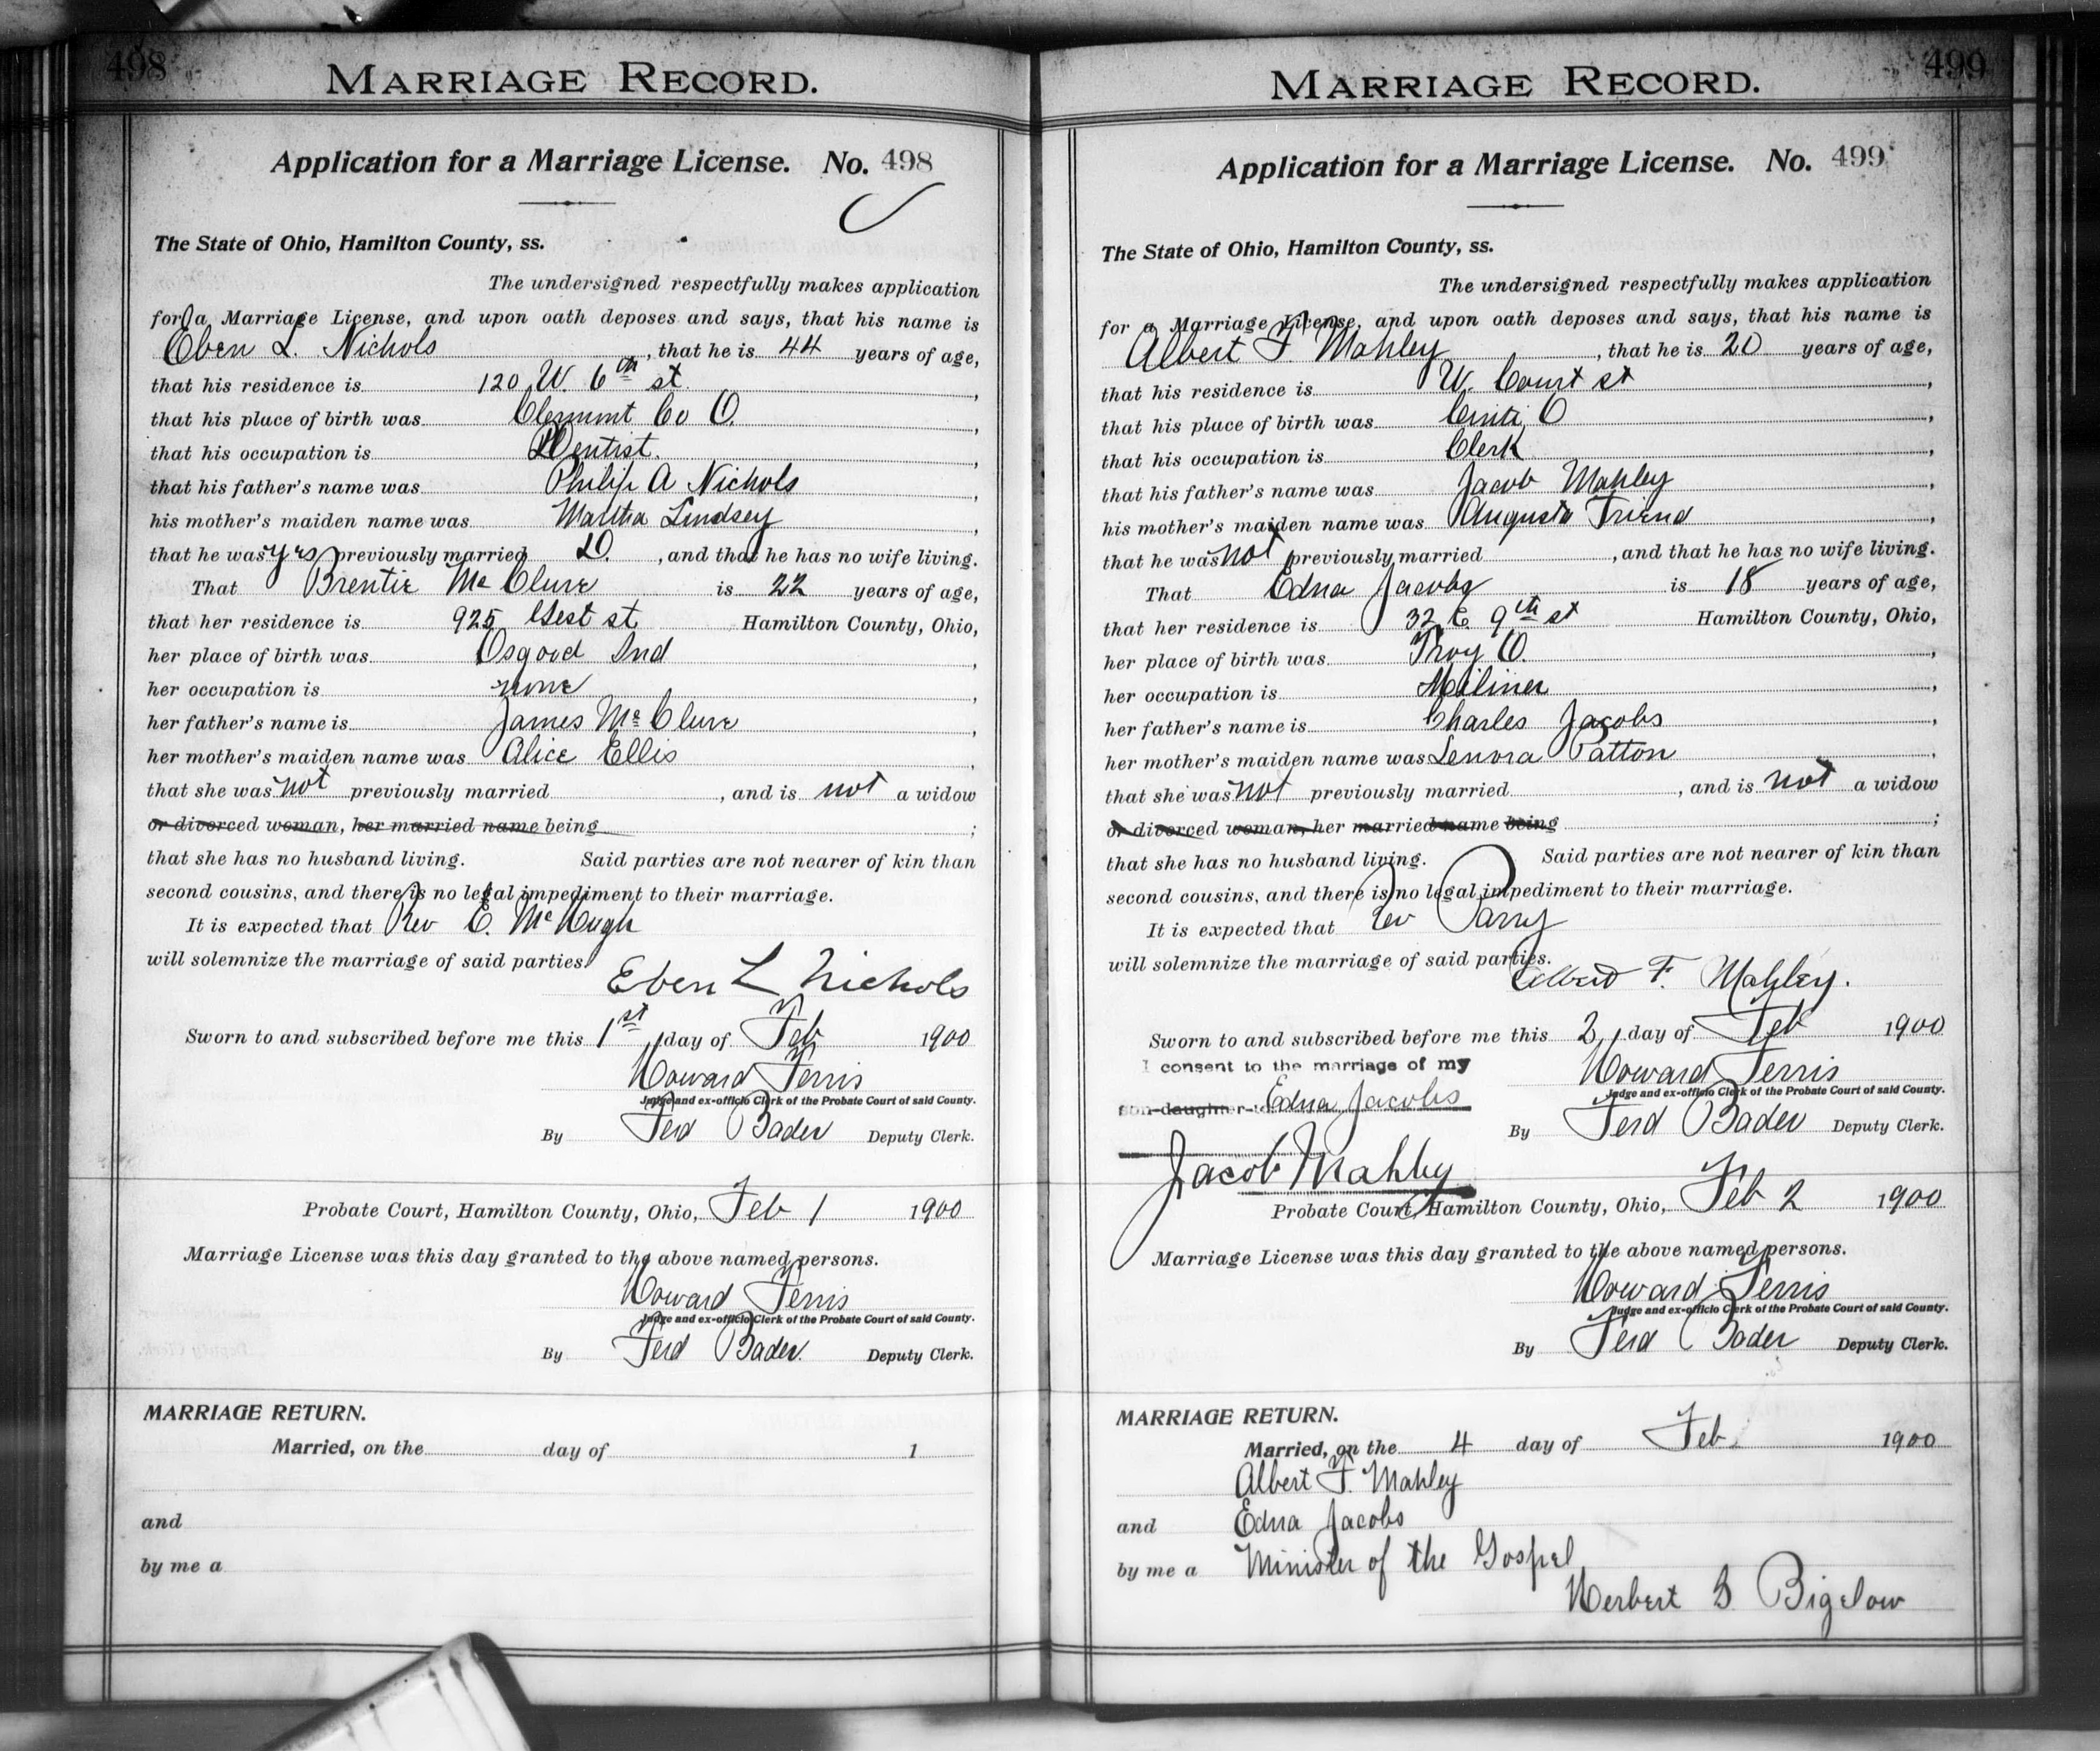 498
MARRIAGE RECORD.
Application for a Marriage License. No. 498
The State of Ohio, Hamilton County, ss.
The undersigned respectfully makes application
for a Marriage License, and upon oath deposes and says, that his name is
Eben L. Nichols, that he is 44 years of age,
that his residence is 120 W. 6th st,
that his place of birth was Clermont Co O.,
that his occupation is Dentist.,
that his father's name was Philip A Nichols,
his mother's maiden name was Martha Lindsey,
that he was yes previously married D., and that he has no wife living.
That Brentie Mc Clure is 22 years of age,
that her residence is 925 Gest st Hamilton County, Ohio,
her place of birth was Osgood Ind,
her occupation is none,
her father's name is James Mc Clure,
her mother's maiden name was Alice Ellis,
that she was not previously married, and is not a widow
or divorced woman, her married name being;
that she has no husband living. Said parties are not nearer of kin than
second cousins, and there is no legal impediment to their marriage.
It is expected that Rev C. Mc Hugh
will solemnize the marriage of said parties.
Eben L Nichols
Sworn to and subscribed before me this 1st day of Feb 1900
Howard Ferris
Judge and ex-officio Clerk of the Probate Court of said County.
By Ferd Bader Deputy Clerk.
Probate Court, Hamilton County, Ohio, Feb 1 1900
Marriage License was this day granted to the above named persons.
Howard Ferris
Judge and ex-officio Clerk of the Probate Court of said County.
By Ferd Bader. Deputy Clerk.
MARRIAGE RETURN.
Married, on the day of 1
and
by me a
499
MARRIAGE RECORD.
Application for a Marriage License. No. 499
The State of Ohio, Hamilton County, ss.
The undersigned respectfully makes application
for a Marriage License, and upon oath deposes and says, that his name is
Albert F. Mahley, that he is 20 years of age,
that his residence is W. Court st,
that his place of birth was Cinti, O,
that his occupation is Clerk,
that his father's name was Jacob Mahley,
his mother's maiden name was Augusta Friend,
that he was not previously married, and that he has no wife living.
That Edna Jacobs is 18 years of age,
that her residence is 32 E. 9th st Hamilton County, Ohio,
her place of birth was Troy O.,
her occupation is Miliner,
her father's name is Charles Jacobs,
her mother's maiden name was Lenora Patton,
that she was not previously married, and is not a widow
or divorced woman, her married name being;
that she has no husband living. Said parties are not nearer of kin than
second cousins, and there is no legal impediment to their marriage.
It is expected that Rev Parry
will solemnize the marriage of said parties.
Albert F. Mahley.
Sworn to and subscribed before me this 2 day of Feb 1900
I consent to the marriage of my
son-daughter-to Edna Jacobs
Howard Ferris
Judge and ex-officio Clerk of the Probate Court of said County.
By Ferd Bader Deputy Clerk.
Jacob Mahley
Probate Court, Hamilton County, Ohio, Feb 2 1900
Marriage License was this day granted to the above named persons.
Howard Ferris
Judge and ex-officio Clerk of the Probate Court of said County.
By Ferd Bader Deputy Clerk.
MARRIAGE RETURN.
Married, on the 4 day of Feb. 1900
Albert F. Mahley
and Edna Jacobs
by me a Minister of the Gospel
Herbert S Bigelow